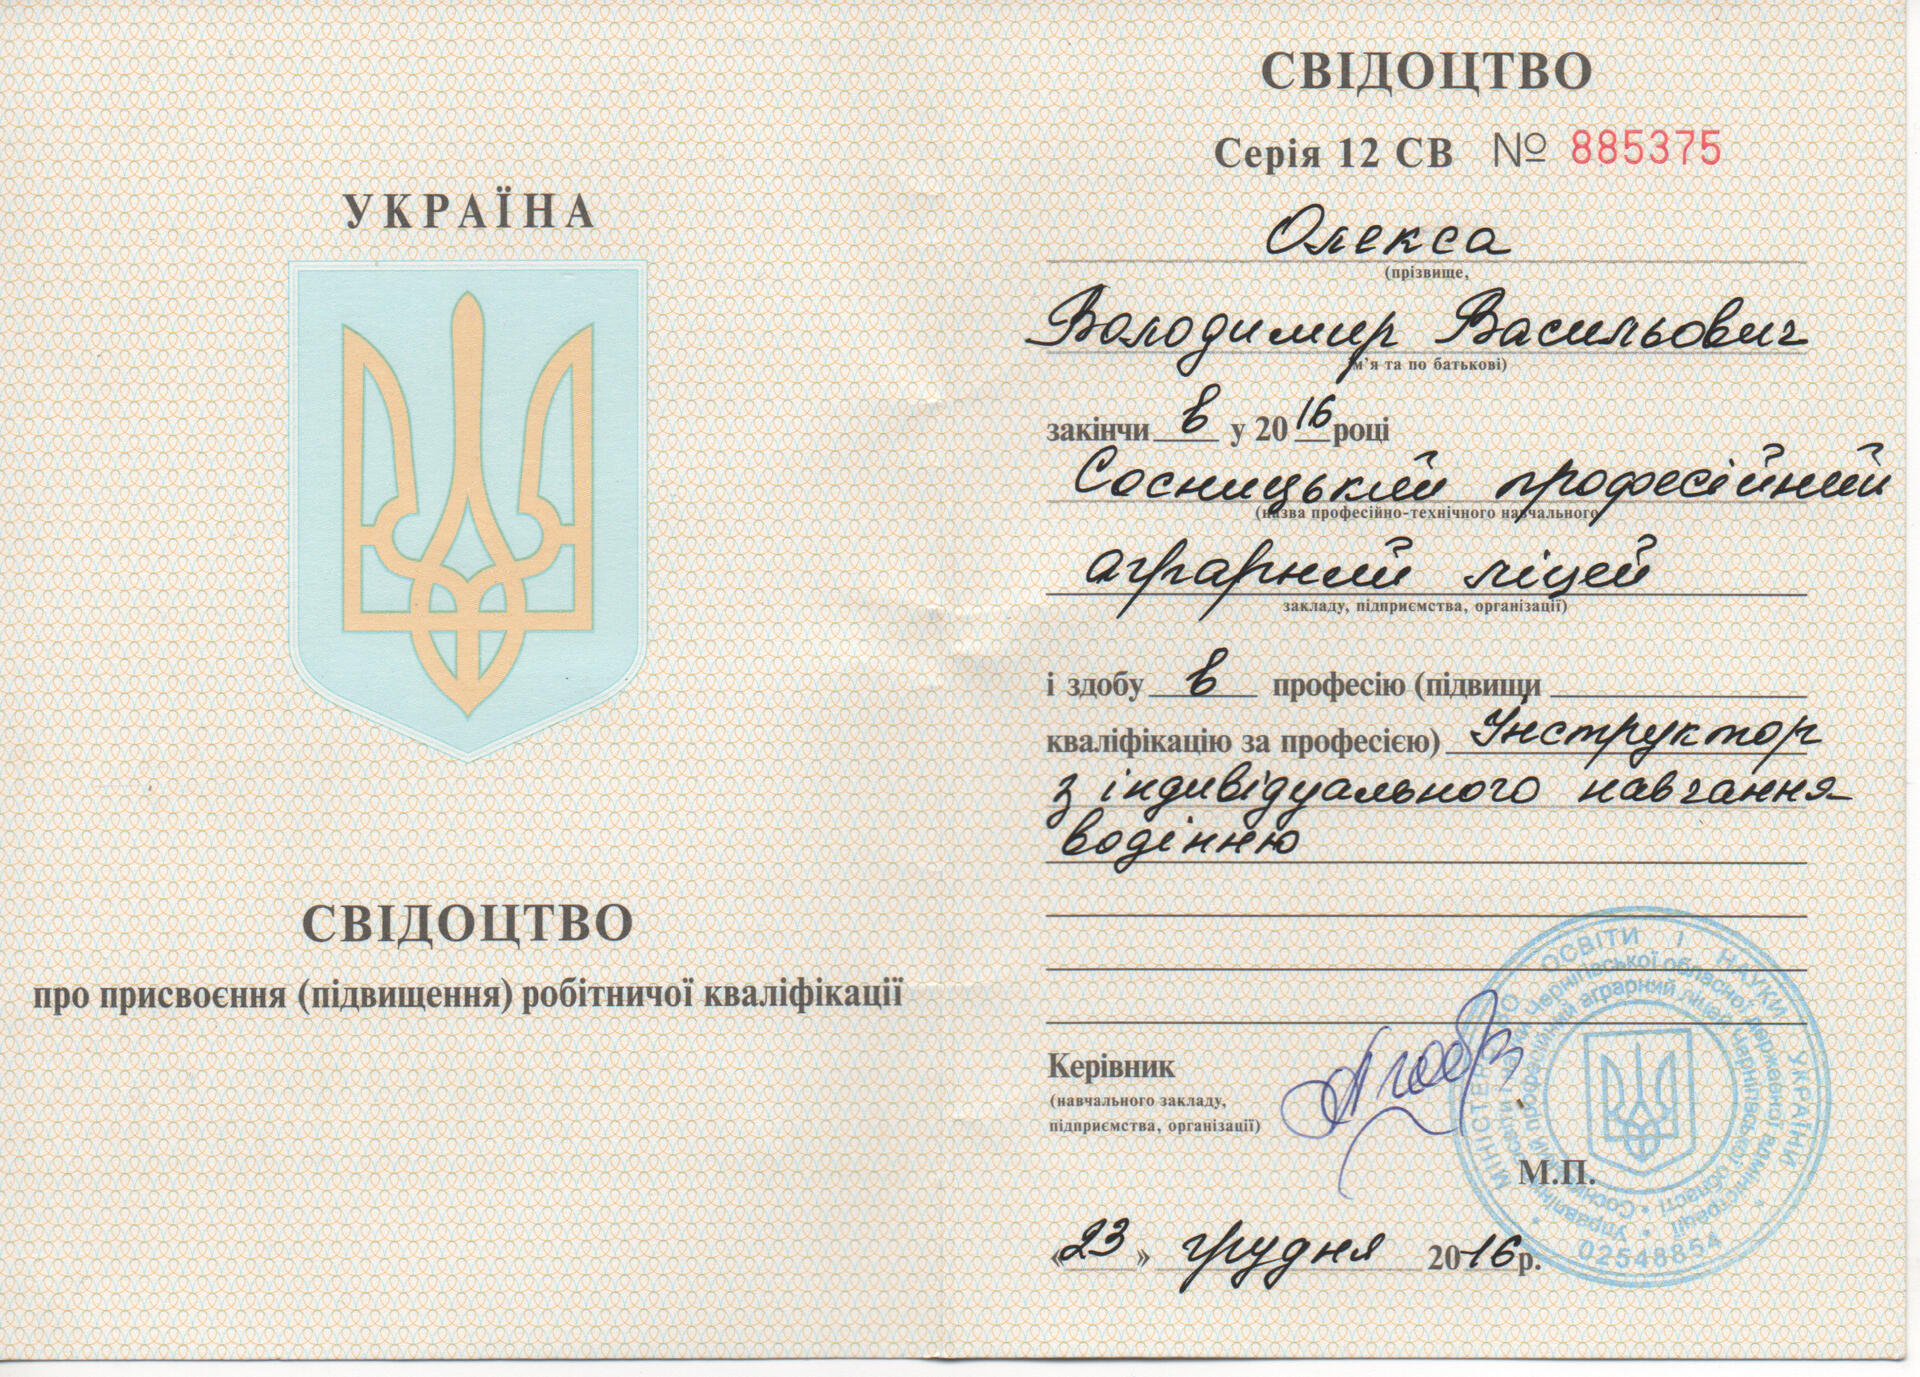 УКРАЇНА
СВІДОЦТВО
про присвоєння (підвищення) робітничої кваліфікації
СВІДОЦТВО
Серія 12 СВ № 885375
Олекса
(прізвище,
Володимир Васильович
м'я та по батькові)
закінчи в у 2016 році
Сосницький професійний
(назва професійно-технічного навчального
аграрний ліцей
закладу, підприємства, організації)
і здобу в професію (підвищи
кваліфікацію за професією) Інструктор
з індивідуального навчання
водінню
Керівник
(навчального закладу,
підприємства, організації)
М.П.
«23» грудня 2016р.
МІНІСТЕРСТВО ОСВІТИ І НАУКИ УКРАЇНИ
Управління освіти і науки Чернігівської обласної державної адміністрації
Сосницький професійний аграрний ліцей Чернігівської області
02548854